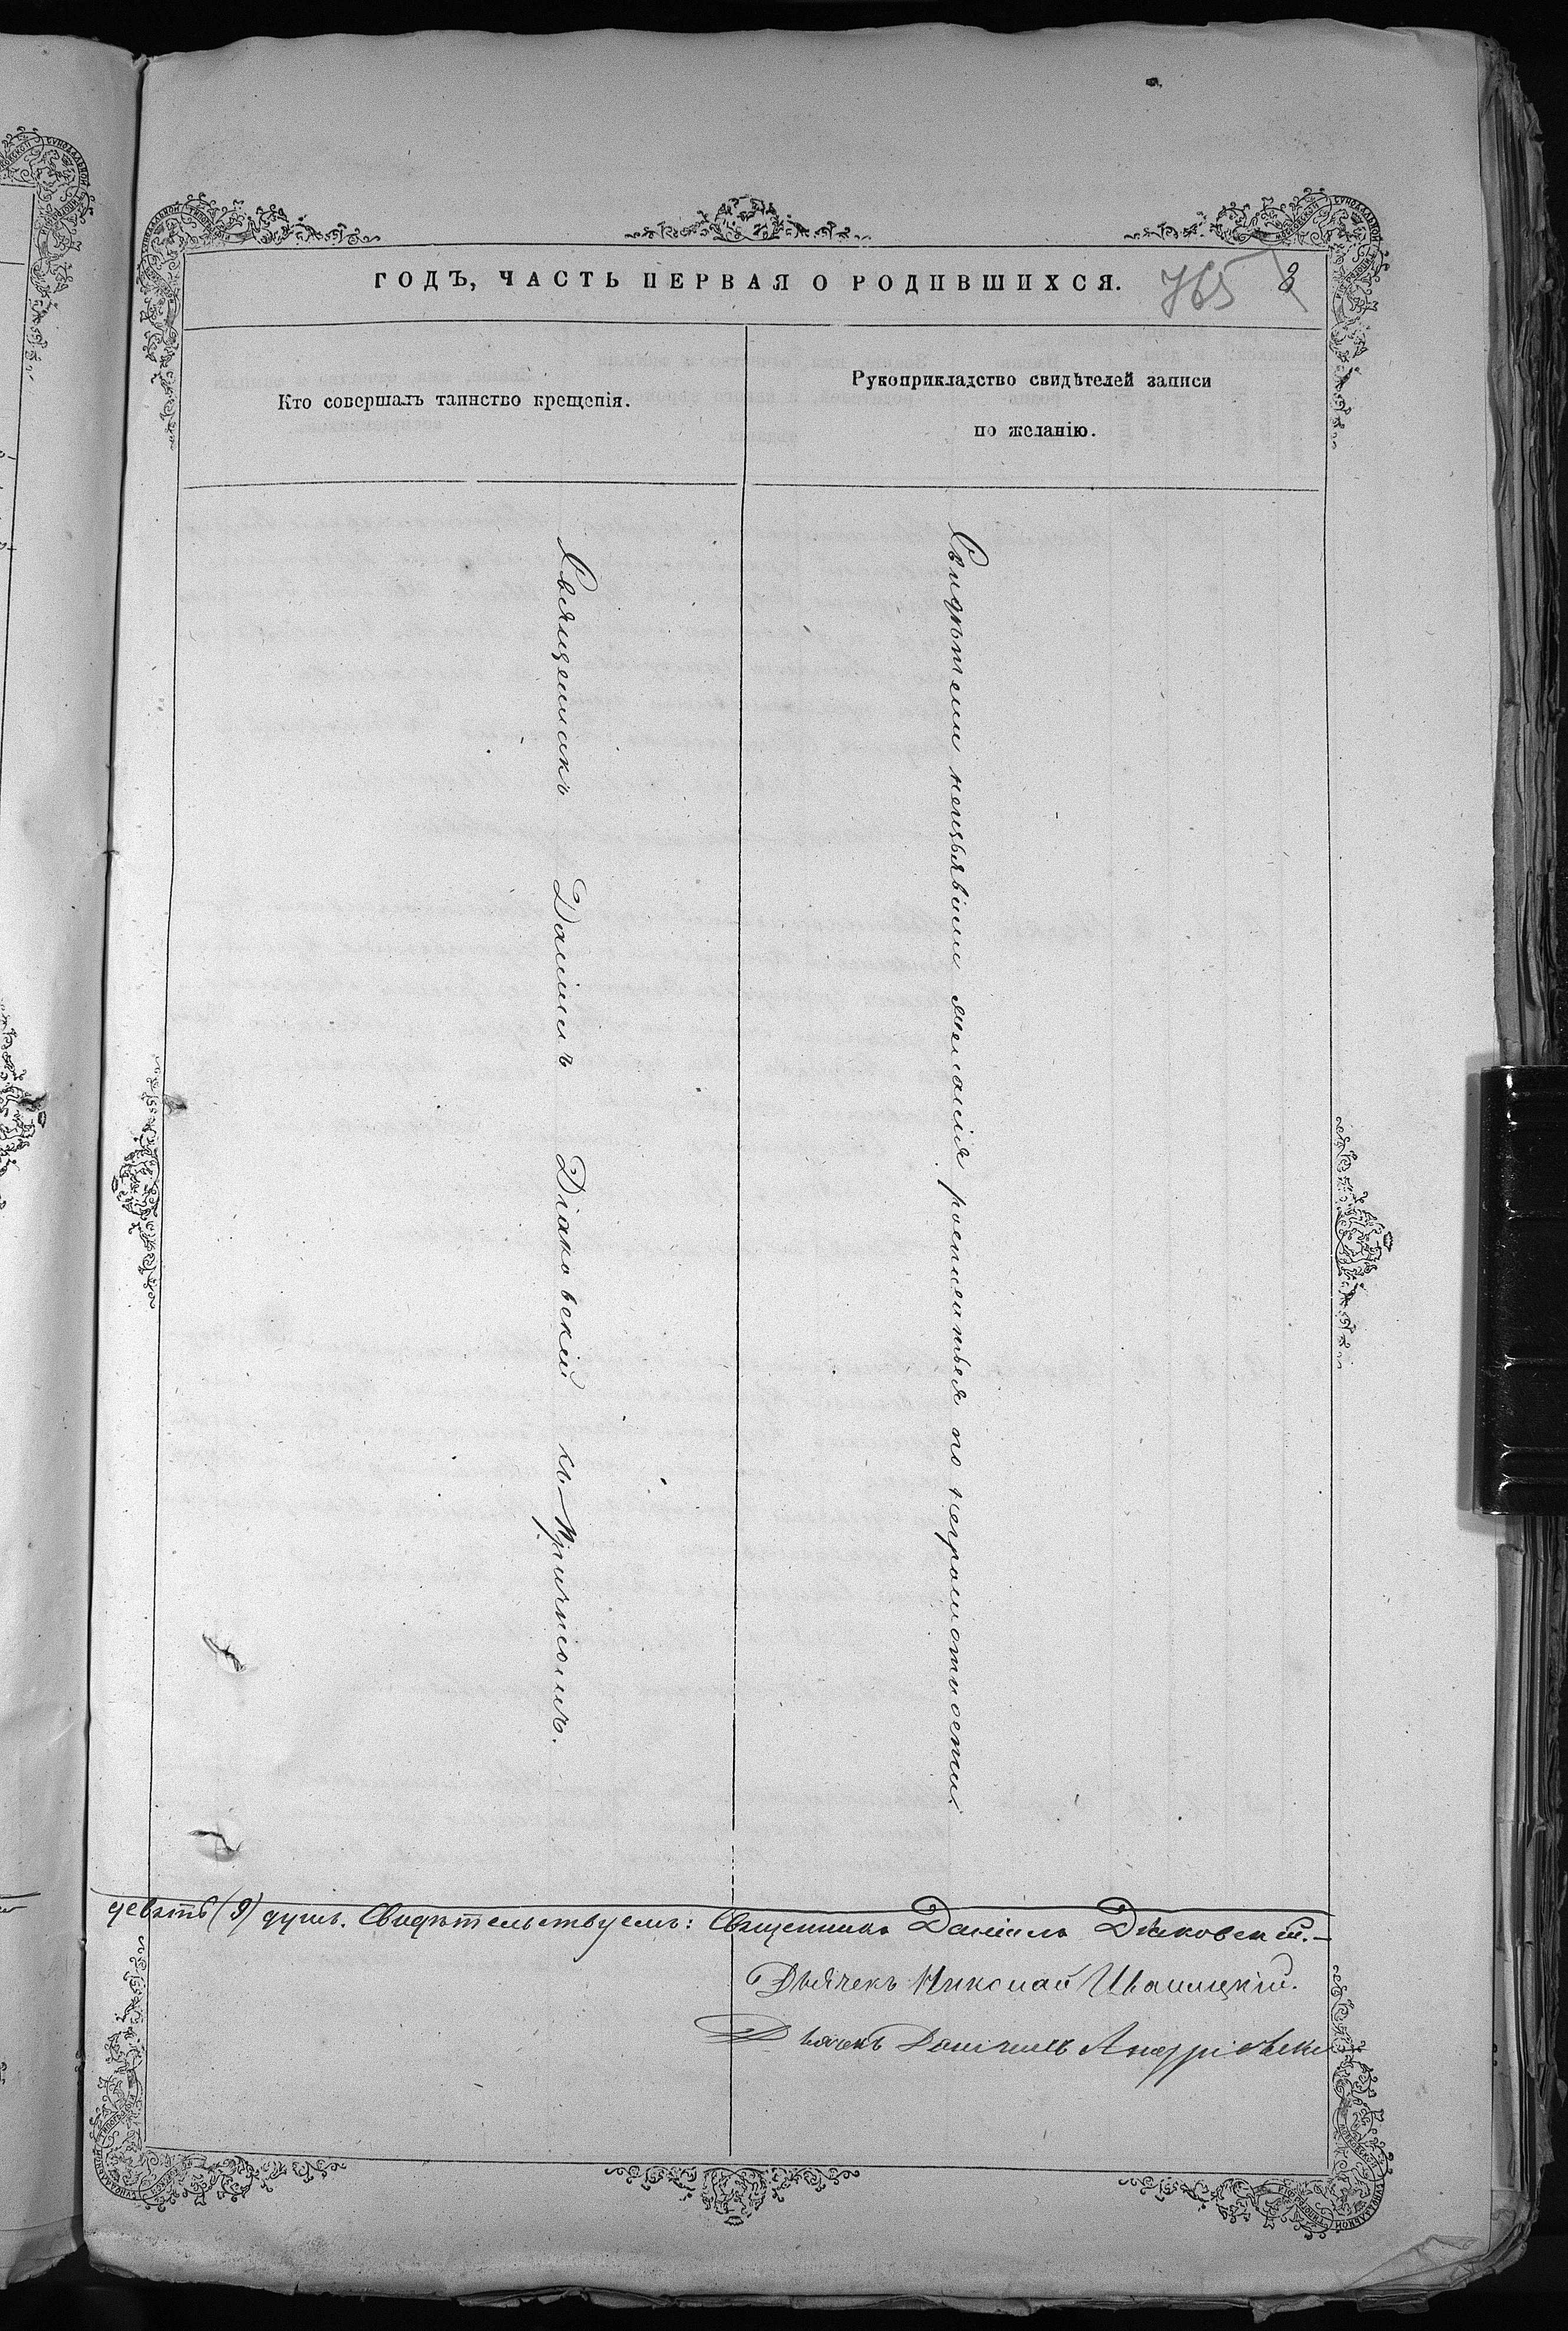 ГОДЪ, ЧАСТЬ ПЕРВАЯ О РОДИВШИХСЯ.
765 3
Кто совершалъ таинство крещенія.
Рукоприкладство свидѣтелей записи
по желанію.
Священникъ Даніилъ Діаковскій съ Причтомъ.
Свидѣтели неизъявили желанія росписатся по неграмотности.
девять (9) душъ. Свидѣтельствуемъ: Священникъ Даніилъ Діяковскій.-
Дьячекъ Николай Иваницкій.
Дьячекъ Даніилъ Андріевскі